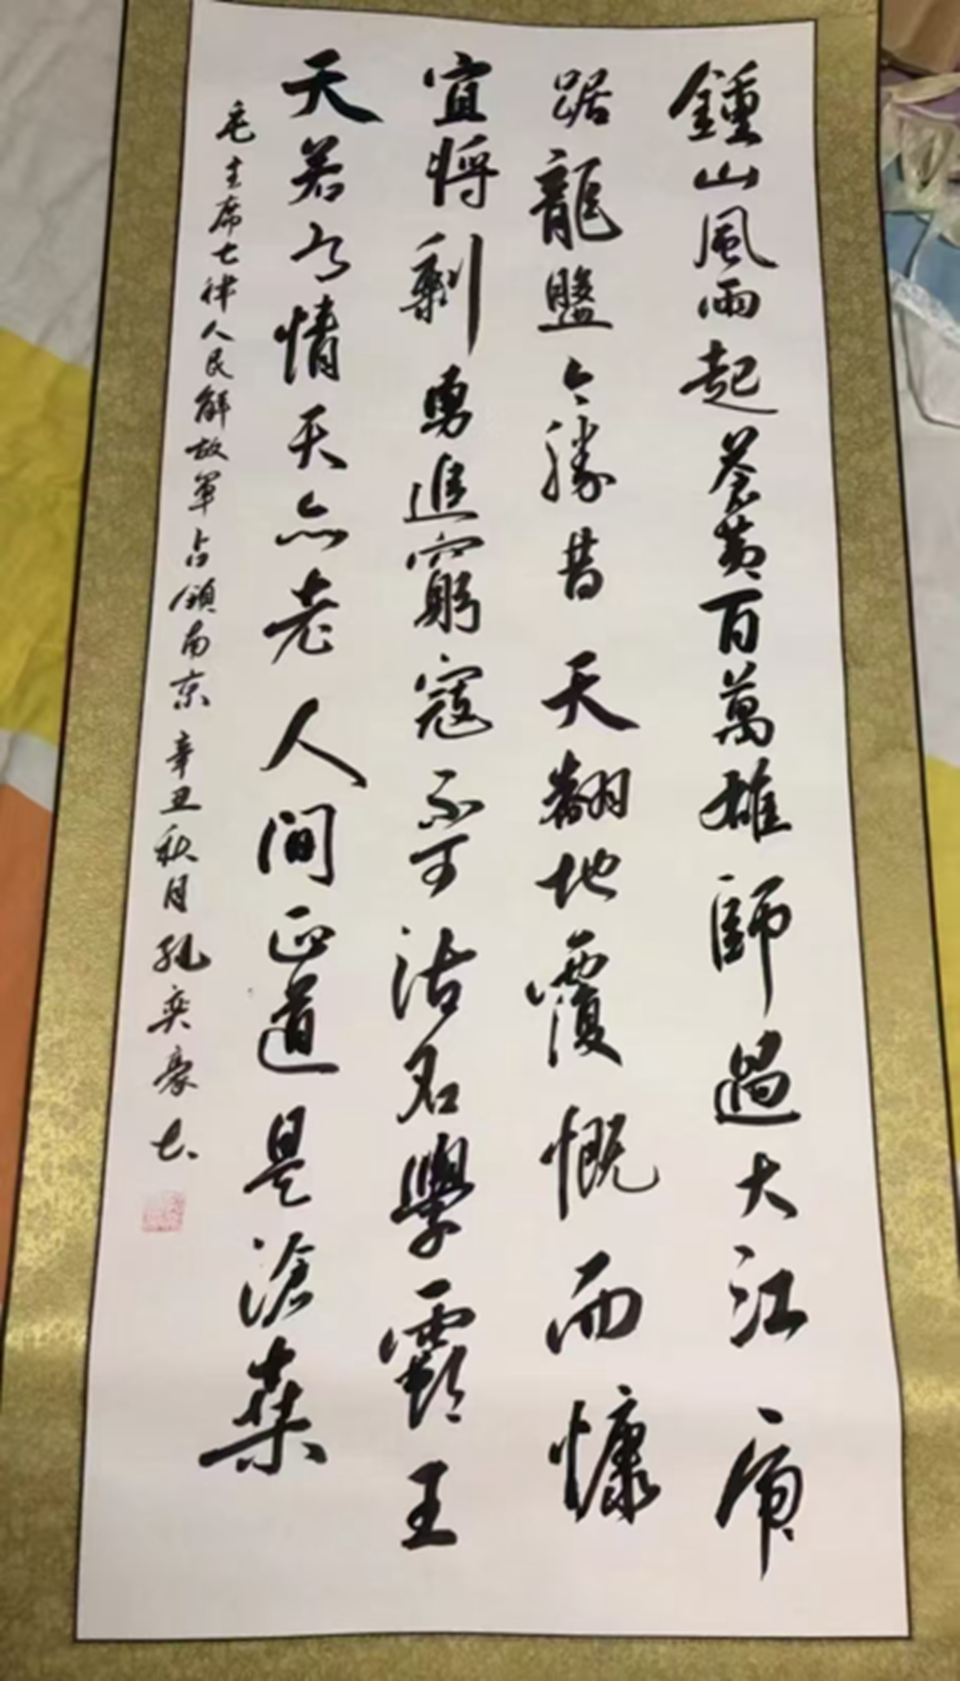 鍾山風雨起蒼黄百萬雄師過大江虎
踞龍盤今勝昔天翻地覆慨而慷
宜将剩勇追窮寇不可沽名學霸王
天若有情天亦老人间正道是滄桑
毛主席七律人民解放軍占領南京 辛丑秋月孔奕豪书